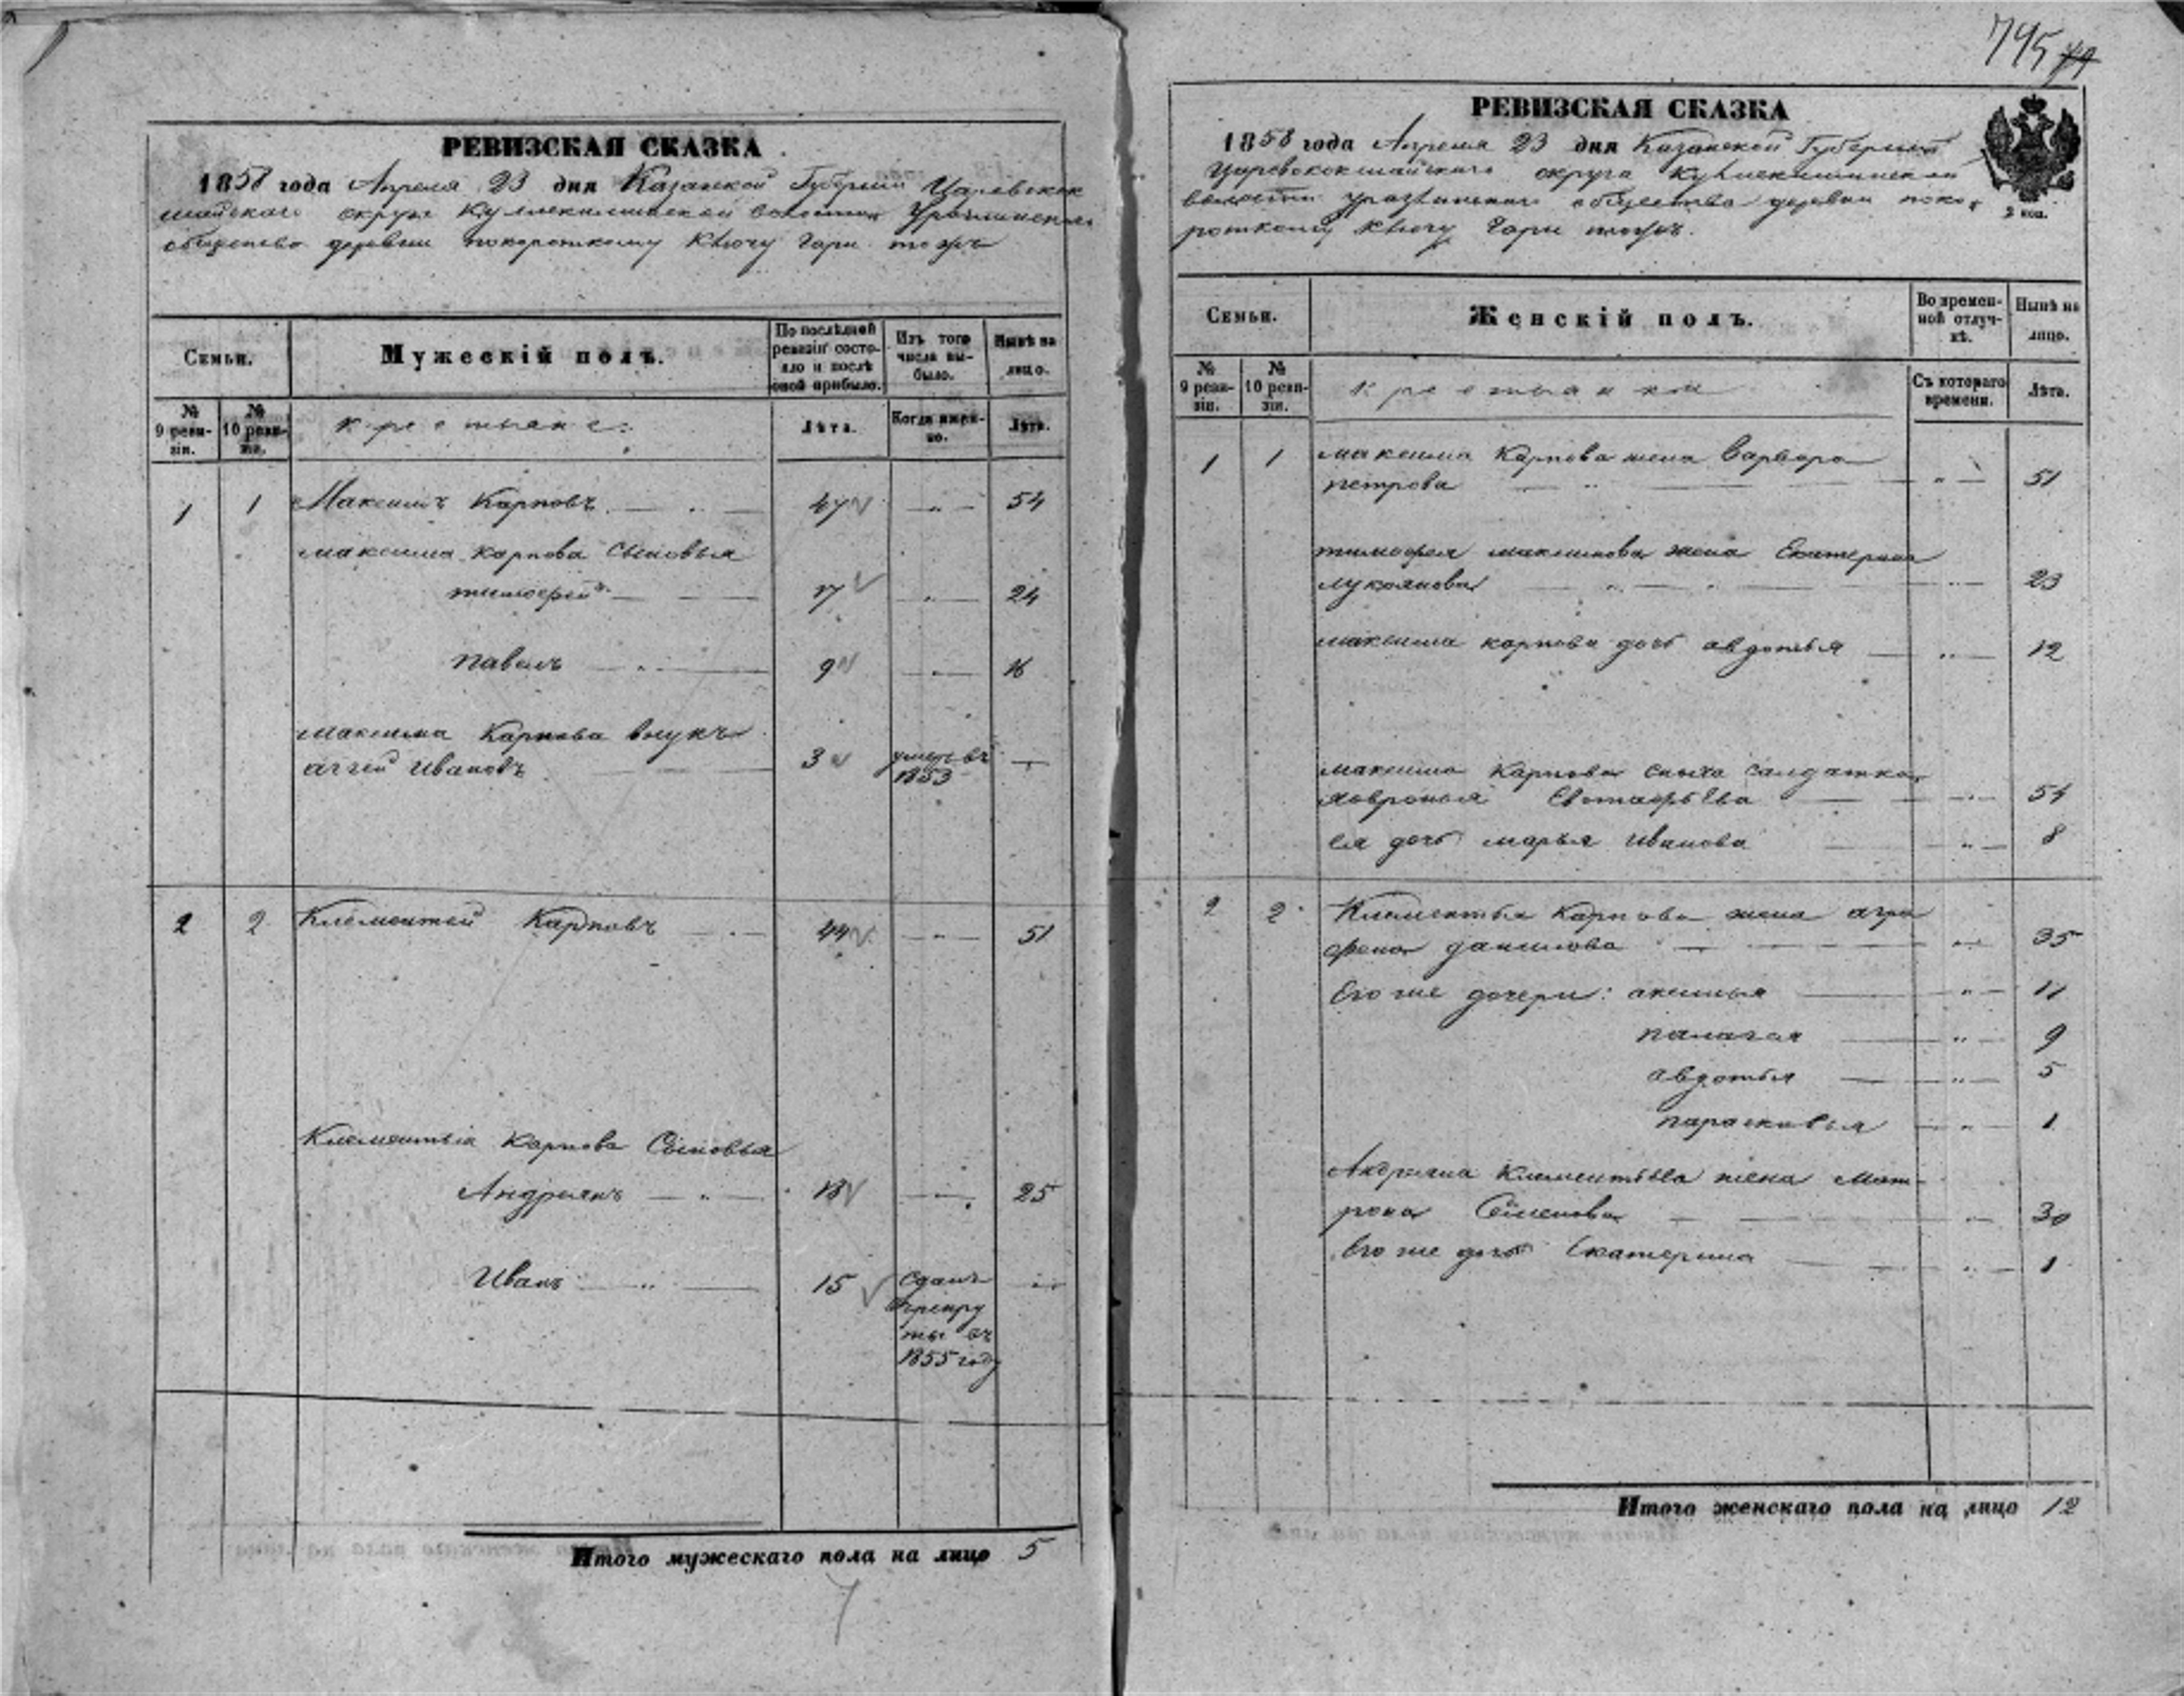 РЕВИЗСКАЯ СКАЗКА
1858 года Апреля 23 дня Казанской Губернии Царевокок
шайскаго округа волости
общества деревни покороткому Ключу Чари тожъ
Семьи.
Мужескій полъ.
По послѣдней ревизіи состояло и послѣ оной прибыло.
Изъ того числа выбыло.
Нынѣ на лицо.
№ 9 ревизіи.
№ 10 ревизіи.
крестьяне:
Лѣта.
Когда именно.
Лѣта.
1 1 Максимъ Карповъ 47 54
максима карпова Сыновья
тимофей 17 24
павелъ 9 16
максима Карпова внукъ
аггей Ивановъ 3 умеръ въ 1853
2 2 Клементей Карповъ 44 51
Клементья Карпова Сыновья
Андреянъ 18 25
Иванъ 15 Сданъ
врекру
ты въ
1855 году
Итого мужескаго пола на лицо 5
7
745
РЕВИЗСКАЯ СКАЗКА
1858 года Апреля 23 дня Казанской Губернии
Царевококшайскаго округа
волости общества деревни поко
роткому Ключу Чари тожъ.
2 коп.
Семьи.
Женскій полъ.
Во временной отлучкѣ.
Нынѣ на лицо.
№ 9 ревизіи.
№ 10 ревизіи.
крестьянки
Съ котораго времени.
Лѣта.
1 1 максима Карпова жена Варвара
петрова 51
тимофея максимова жена Екатерина
лукоянова 23
максима карпова дочь авдотья 12
максима Карпова сноха салдатка
Евстафьева 54
ея дочь марья Иванова 8
2 2 Клементья Карпова жена агра
фена данилова 35
Его же дочери: аксинья 11
палагая 9
авдотья 5
парасковья 1
Андреяна Клементьева жена Мат
рона Семенова 30
Его же дочь Екатерина 1
Итого женскаго пола на лицо 12